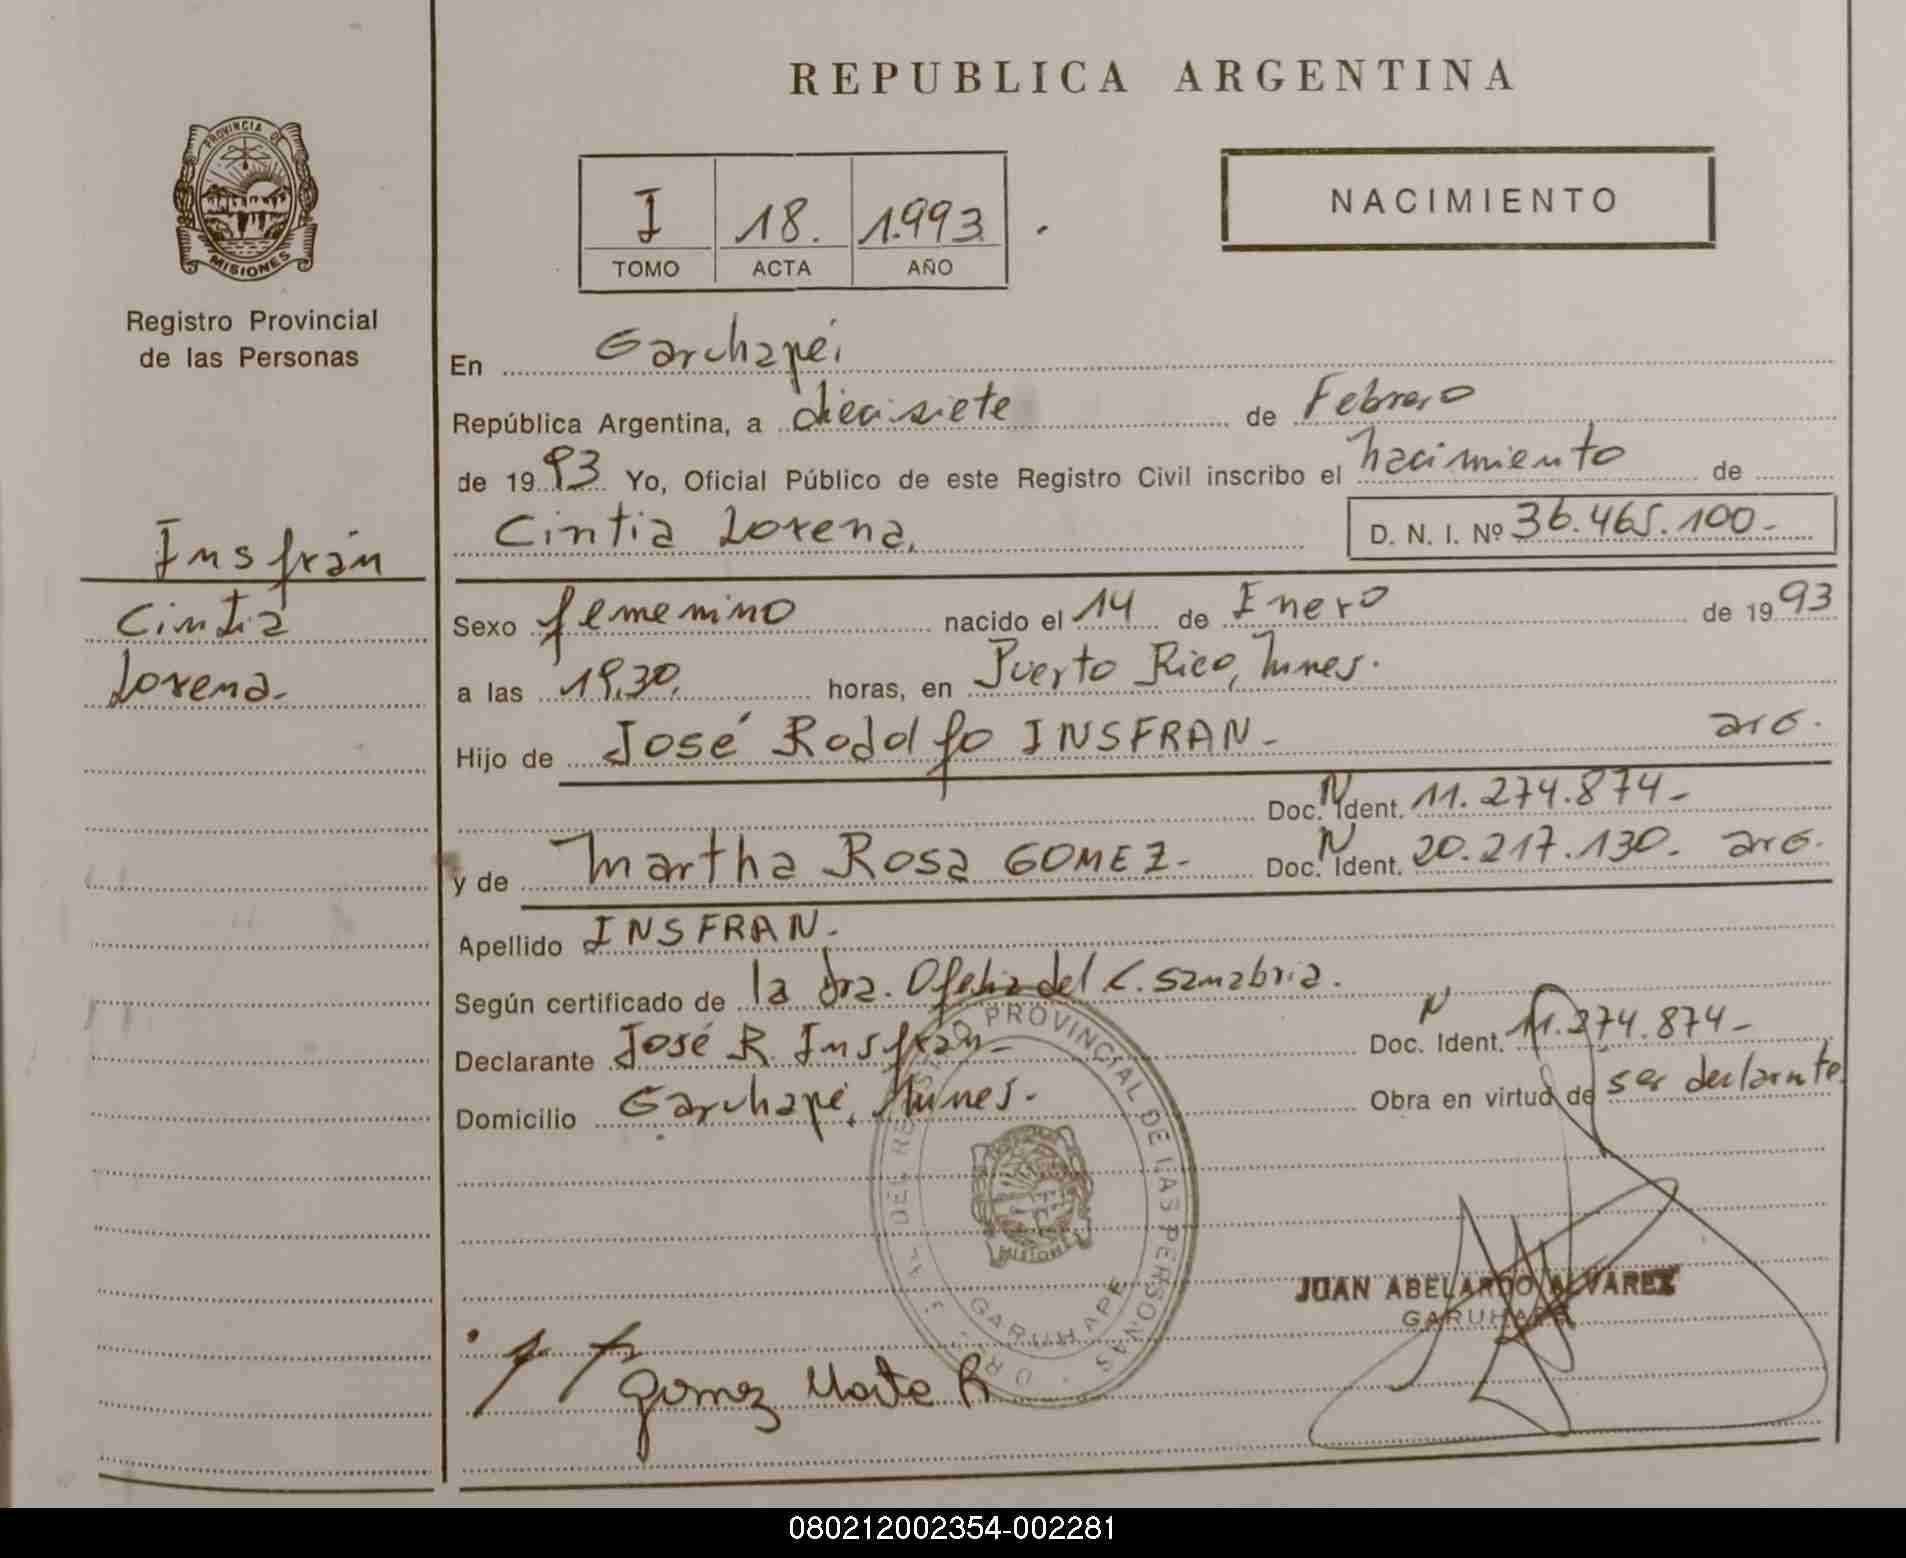 REPUBLICA ARGENTINA
PROVINCIA DE
MISIONES
Registro Provincial
de las Personas
I 18. 1.993.
TOMO ACTA AÑO
NACIMIENTO
En Garuhapé,
República Argentina, a diecisiete de Febrero
de 1993. Yo, Oficial Público de este Registro Civil inscribo el nacimiento de
Cintia Lorena. D. N. I. Nº 36.465.100-
Insfrán
Cintia
Lorena-
Sexo femenino nacido el 14 de Enero de 1993
a las 19,30. horas, en Puerto Rico, Mnes.
Hijo de José Rodolfo INSFRAN- arg.
Doc. N Ident. 11.274.874-
y de Martha Rosa GOMEZ- Doc. N Ident. 20.217.130. arg.
Apellido INSFRAN-
Según certificado de la dra. Ofelia del C. Sanabria.
Declarante José R. Insfrán- Doc. Ident. N 11.274.874-
Domicilio Garuhapé, Mnes- Obra en virtud de ser declarante
DEL REGISTRO PROVINCIAL DE LAS PERSONAS
MISIONES
GARUHAPE
JUAN ABELARDO ALVAREZ
GARUHAPE
Gomez Marta R
080212002354-002281